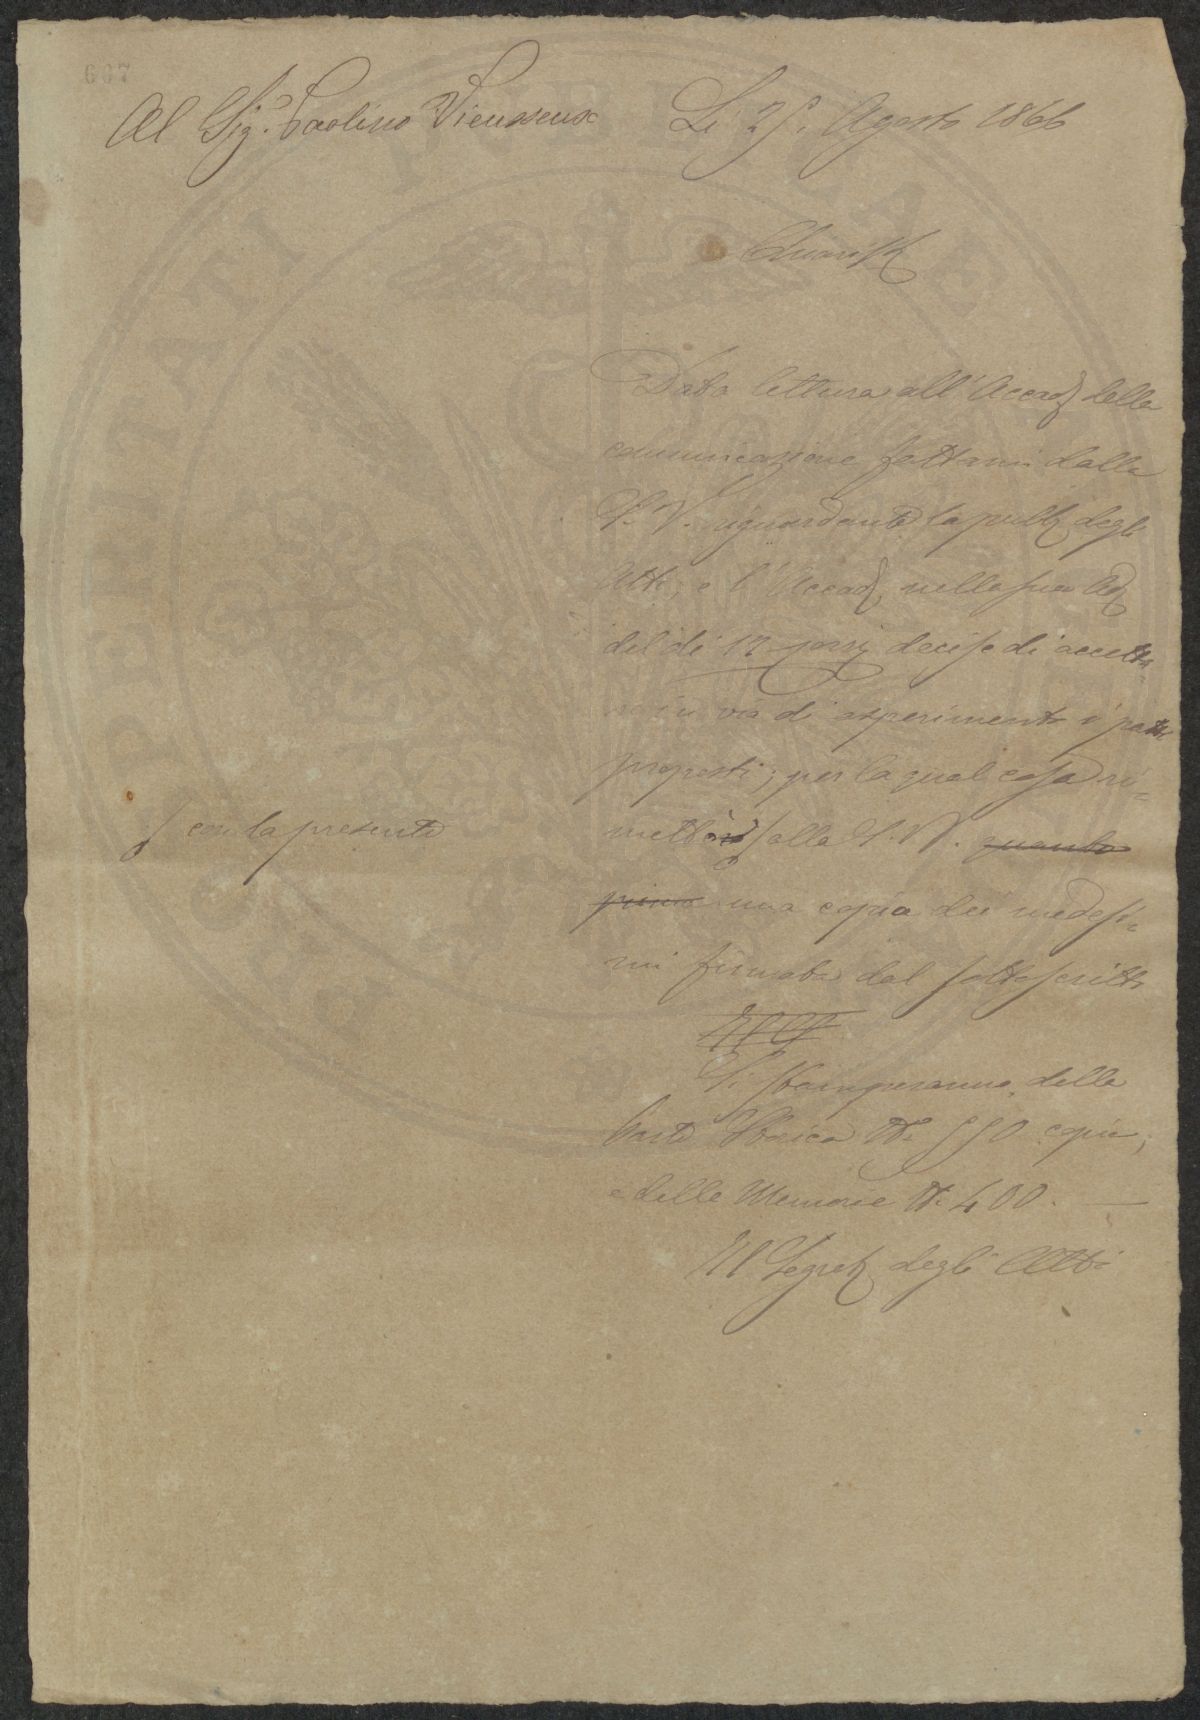 607
Al Sig.r Paolino Vieusseux Li 25. Agosto 1866
Chiariss
Data lettura all'Accad della
comunicazione fattami dalla
S. V. riguardante la pubb degli
Atti, e l'Accad, nella sua Ad
del dì 12 decise di accetta=
re in via di esperimento i patti
proposti; per la qual cosa ri=
metto alla S. V. quanto
ʃ con la presente
prima una copia dei medesi=
mi firmata dal sottoscritto
Si stamperanno, della
Parte Storica N. 550 copie,
e delle Memorie N. 400. —
Il Segret degli Atti
PROSPERITATI PUBLICAE